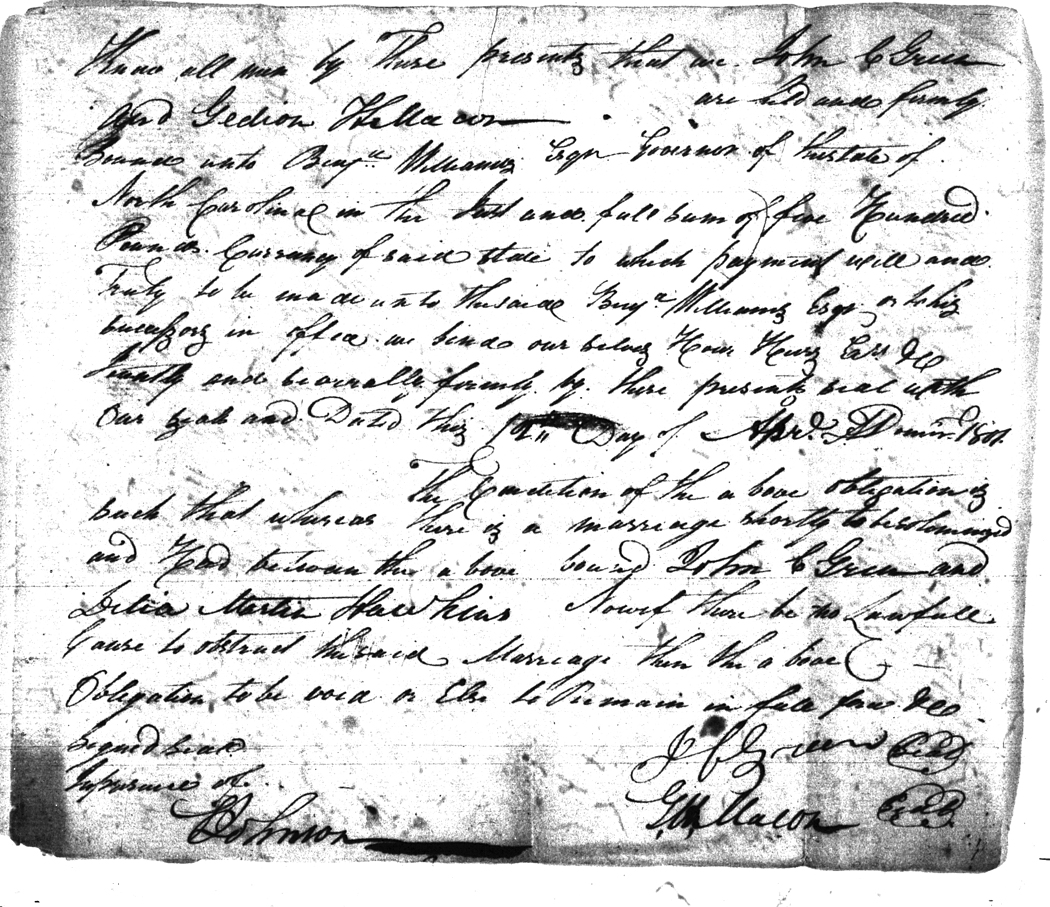 Know all men by These presents that we John C Green
and Gedion H Macon are held and firmly
Bound unto Benja Williams Esqr Governor of the state of
North Carolina in the Just and full sum of five Hundred
Pounds Currancy of said state to which payment will and
Truly to be made unto the said Benja Williams Esqr or to his
successors in office we bind our selves Heirs &c
Jointly and severally firmly by these presents seal with
Our seals and Dated this 12th Day of Aprl 1801
The Condition of the above obligation is
such that whereas there is a marriage shortly to be solomnized
and Had between the above bound John C Green and
Delia Martin Hawkins Now if there be no Lawfull
Cause to obstruct the said Marriage then the above
Obligation to be void or Else to Remain in full force &c
Signed Seald
In presence of
J C Green Seal
G H Macon Seal
Johnson